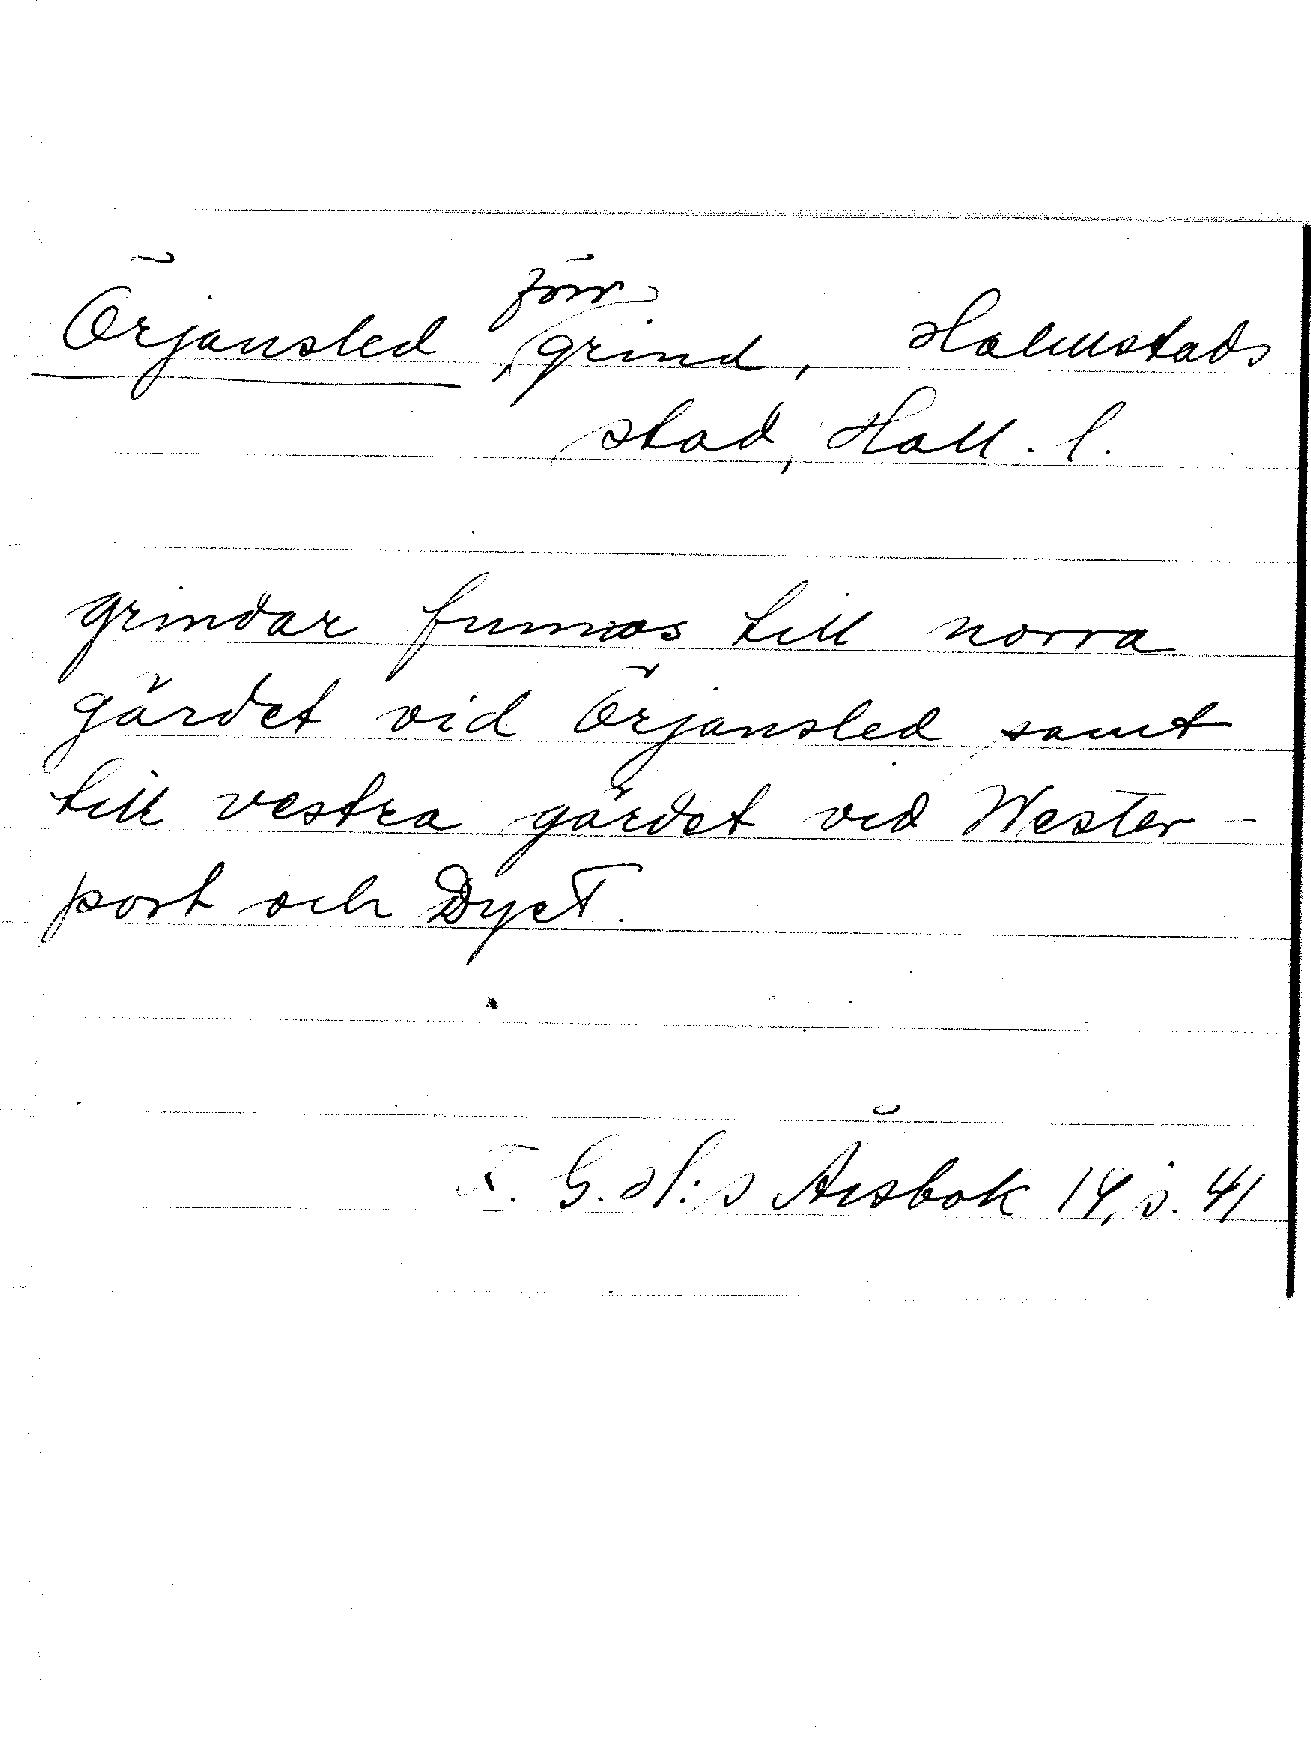 Örjansled förr grind, Halmstads
stad, Hall. l.
grindar funnos till norra
gärdet vid Örjansled samt
till vestra gärdet vid Wester-
port och Dyet.
F. G. H:s Årsbok 14, s. 41